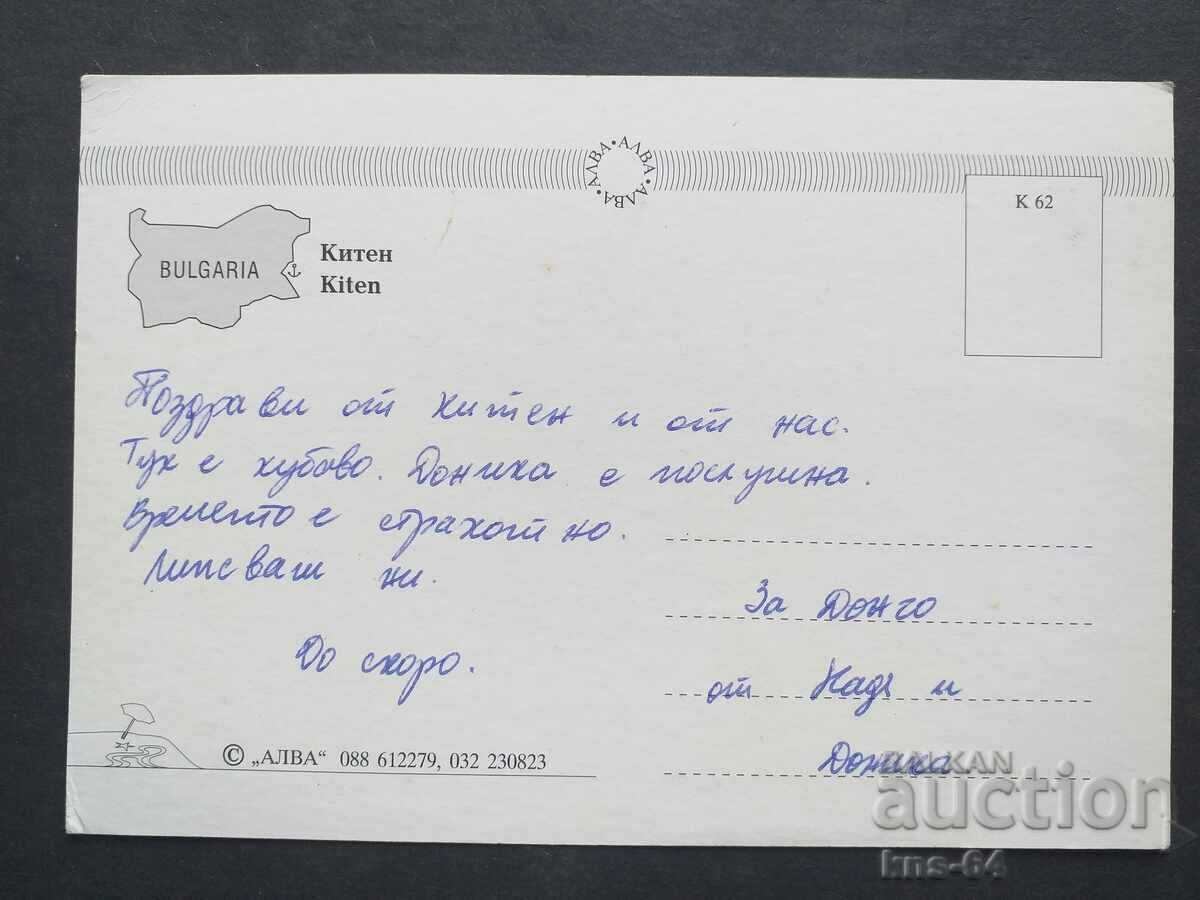 АЛВА • АЛВА • АЛВА • АЛВА •
К 62
BULGARIA
Китен
Kiten
Поздрави от Китен и от нас.
Тук е хубаво. Доника е послушна.
Времето е страхотно.
Липсваш ни.
До скоро.
За Донго
от Надя и
Доника
© „АЛВА“ 088 612279, 032 230823
BALKAN
auction
kns-64